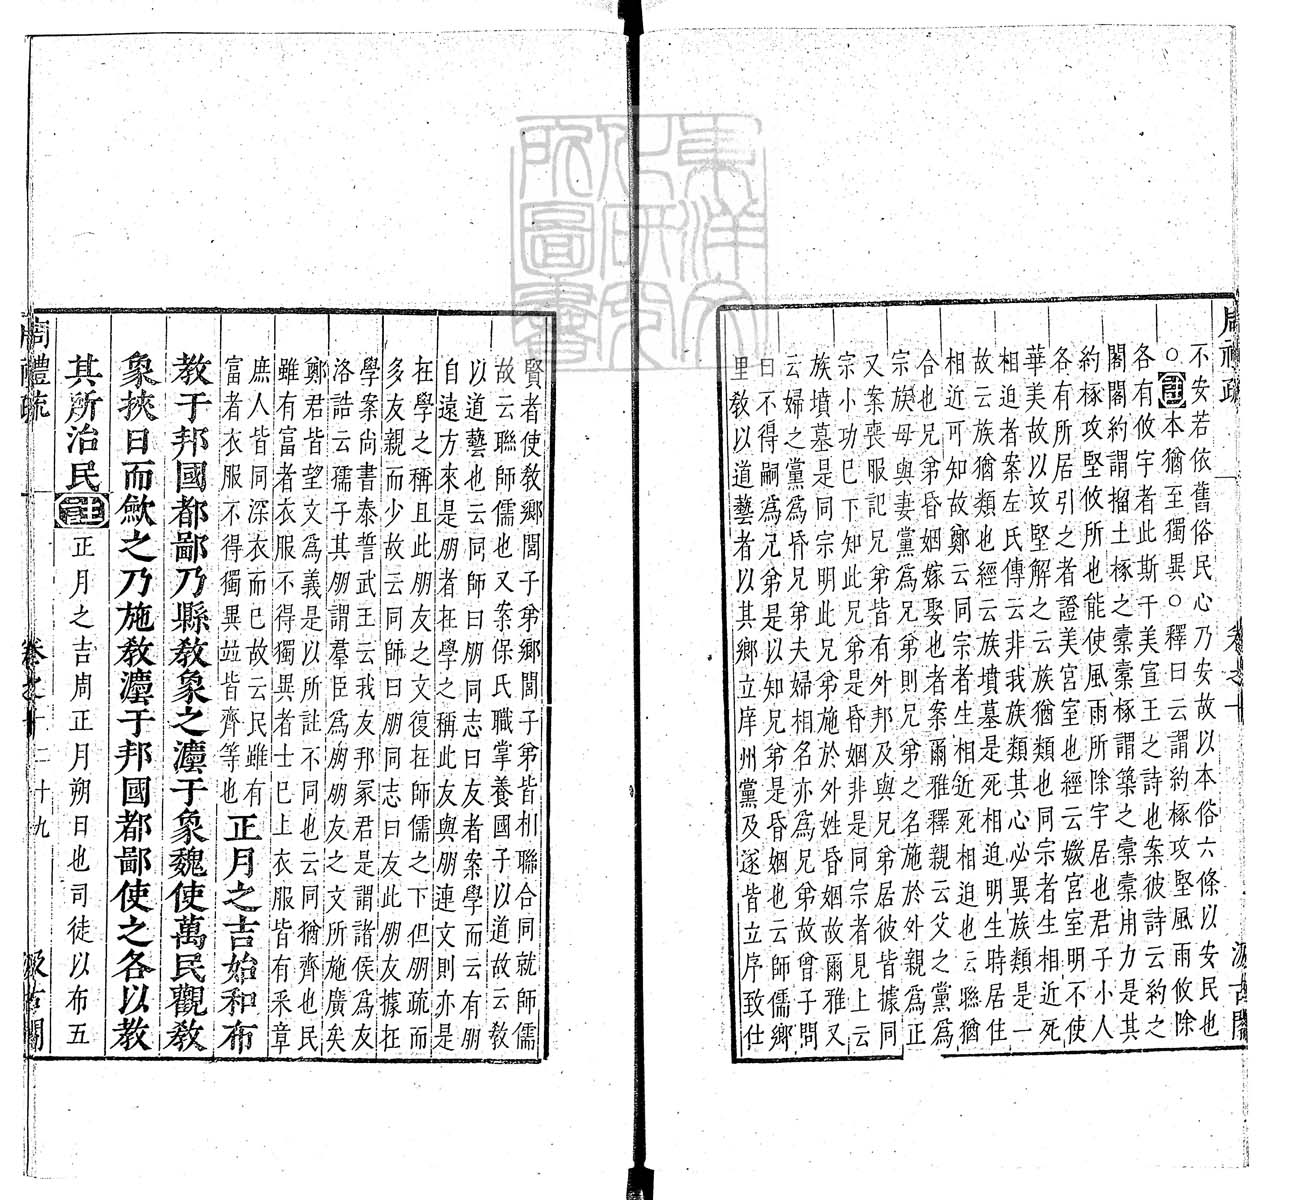 不安若依舊俗民心乃安故以本俗六條以安民也
○註本猶至獨異○釋曰云謂約椓攻堅風雨攸除
各有攸宇者此斯干美宣王之詩也案彼詩云約之
閣閣約謂縮土椓之橐橐椓謂築之橐橐用力是其
約椓攻堅攸所也能使風雨所除宇居也君子小人
各有所居引之者證美宮室也經云媺宮室明不使
華美故以攻堅解之云族猶類也同宗者生相近死
相迫者案左氏傳云非我族類其心必異族類是一
故云族猶類也經云族墳墓是死相迫明生時居住
相近可知故鄭云同宗者生相近死相迫也云聯猶
合也兄弟昏姻嫁娶也者案爾雅釋親云父之黨爲
宗族母與妻黨爲兄弟則兄弟之名施於外親爲正
又案喪服記兄弟皆有外邦及與兄弟居彼皆據同
宗小功已下知此兄弟是昏姻非是同宗者見上云
族墳墓是同宗明此兄弟施於外姓昏姻故爾雅又
云婦之黨爲昏兄弟夫婦相名亦爲兄弟故曾子問
曰不得嗣爲兄弟是以知兄弟是昏姻也云師儒鄉
里教以道藝者以其鄉立庠州黨及遂皆立序致仕
賢者使教鄉閭子弟鄉閭子弟皆相聯合同就師儒
故云聯師儒也又案保氏職掌養國子以道故云教
以道藝也云同師曰朋同志曰友者案學而云有朋
自遠方來是朋者在學之稱此友與朋連文則亦是
在學之稱且此朋友之文復在師儒之下但朋疏而
多友親而少故云同師曰朋同志曰友此朋友據在
學案尚書泰誓武王云我友邦冢君是謂諸侯爲友
洛誥云孺子其朋謂羣臣爲朋朋友之文所施廣矣
鄭君皆望文爲義是以所註不同也云同猶齊也民
雖有富者衣服不得獨異者士已上衣服皆有采章
庶人皆同深衣而已故云民雖有
富者衣服不得獨異竝皆齊等也 正月之吉始和布
教于邦國都鄙乃縣教象之灋于象魏使萬民觀教
象挾日而斂之乃施教灋于邦國都鄙使之各以教
其所治民註正月之吉周正月朔日也司徒以布五
周禮疏 卷之十 二十九 汲古閣